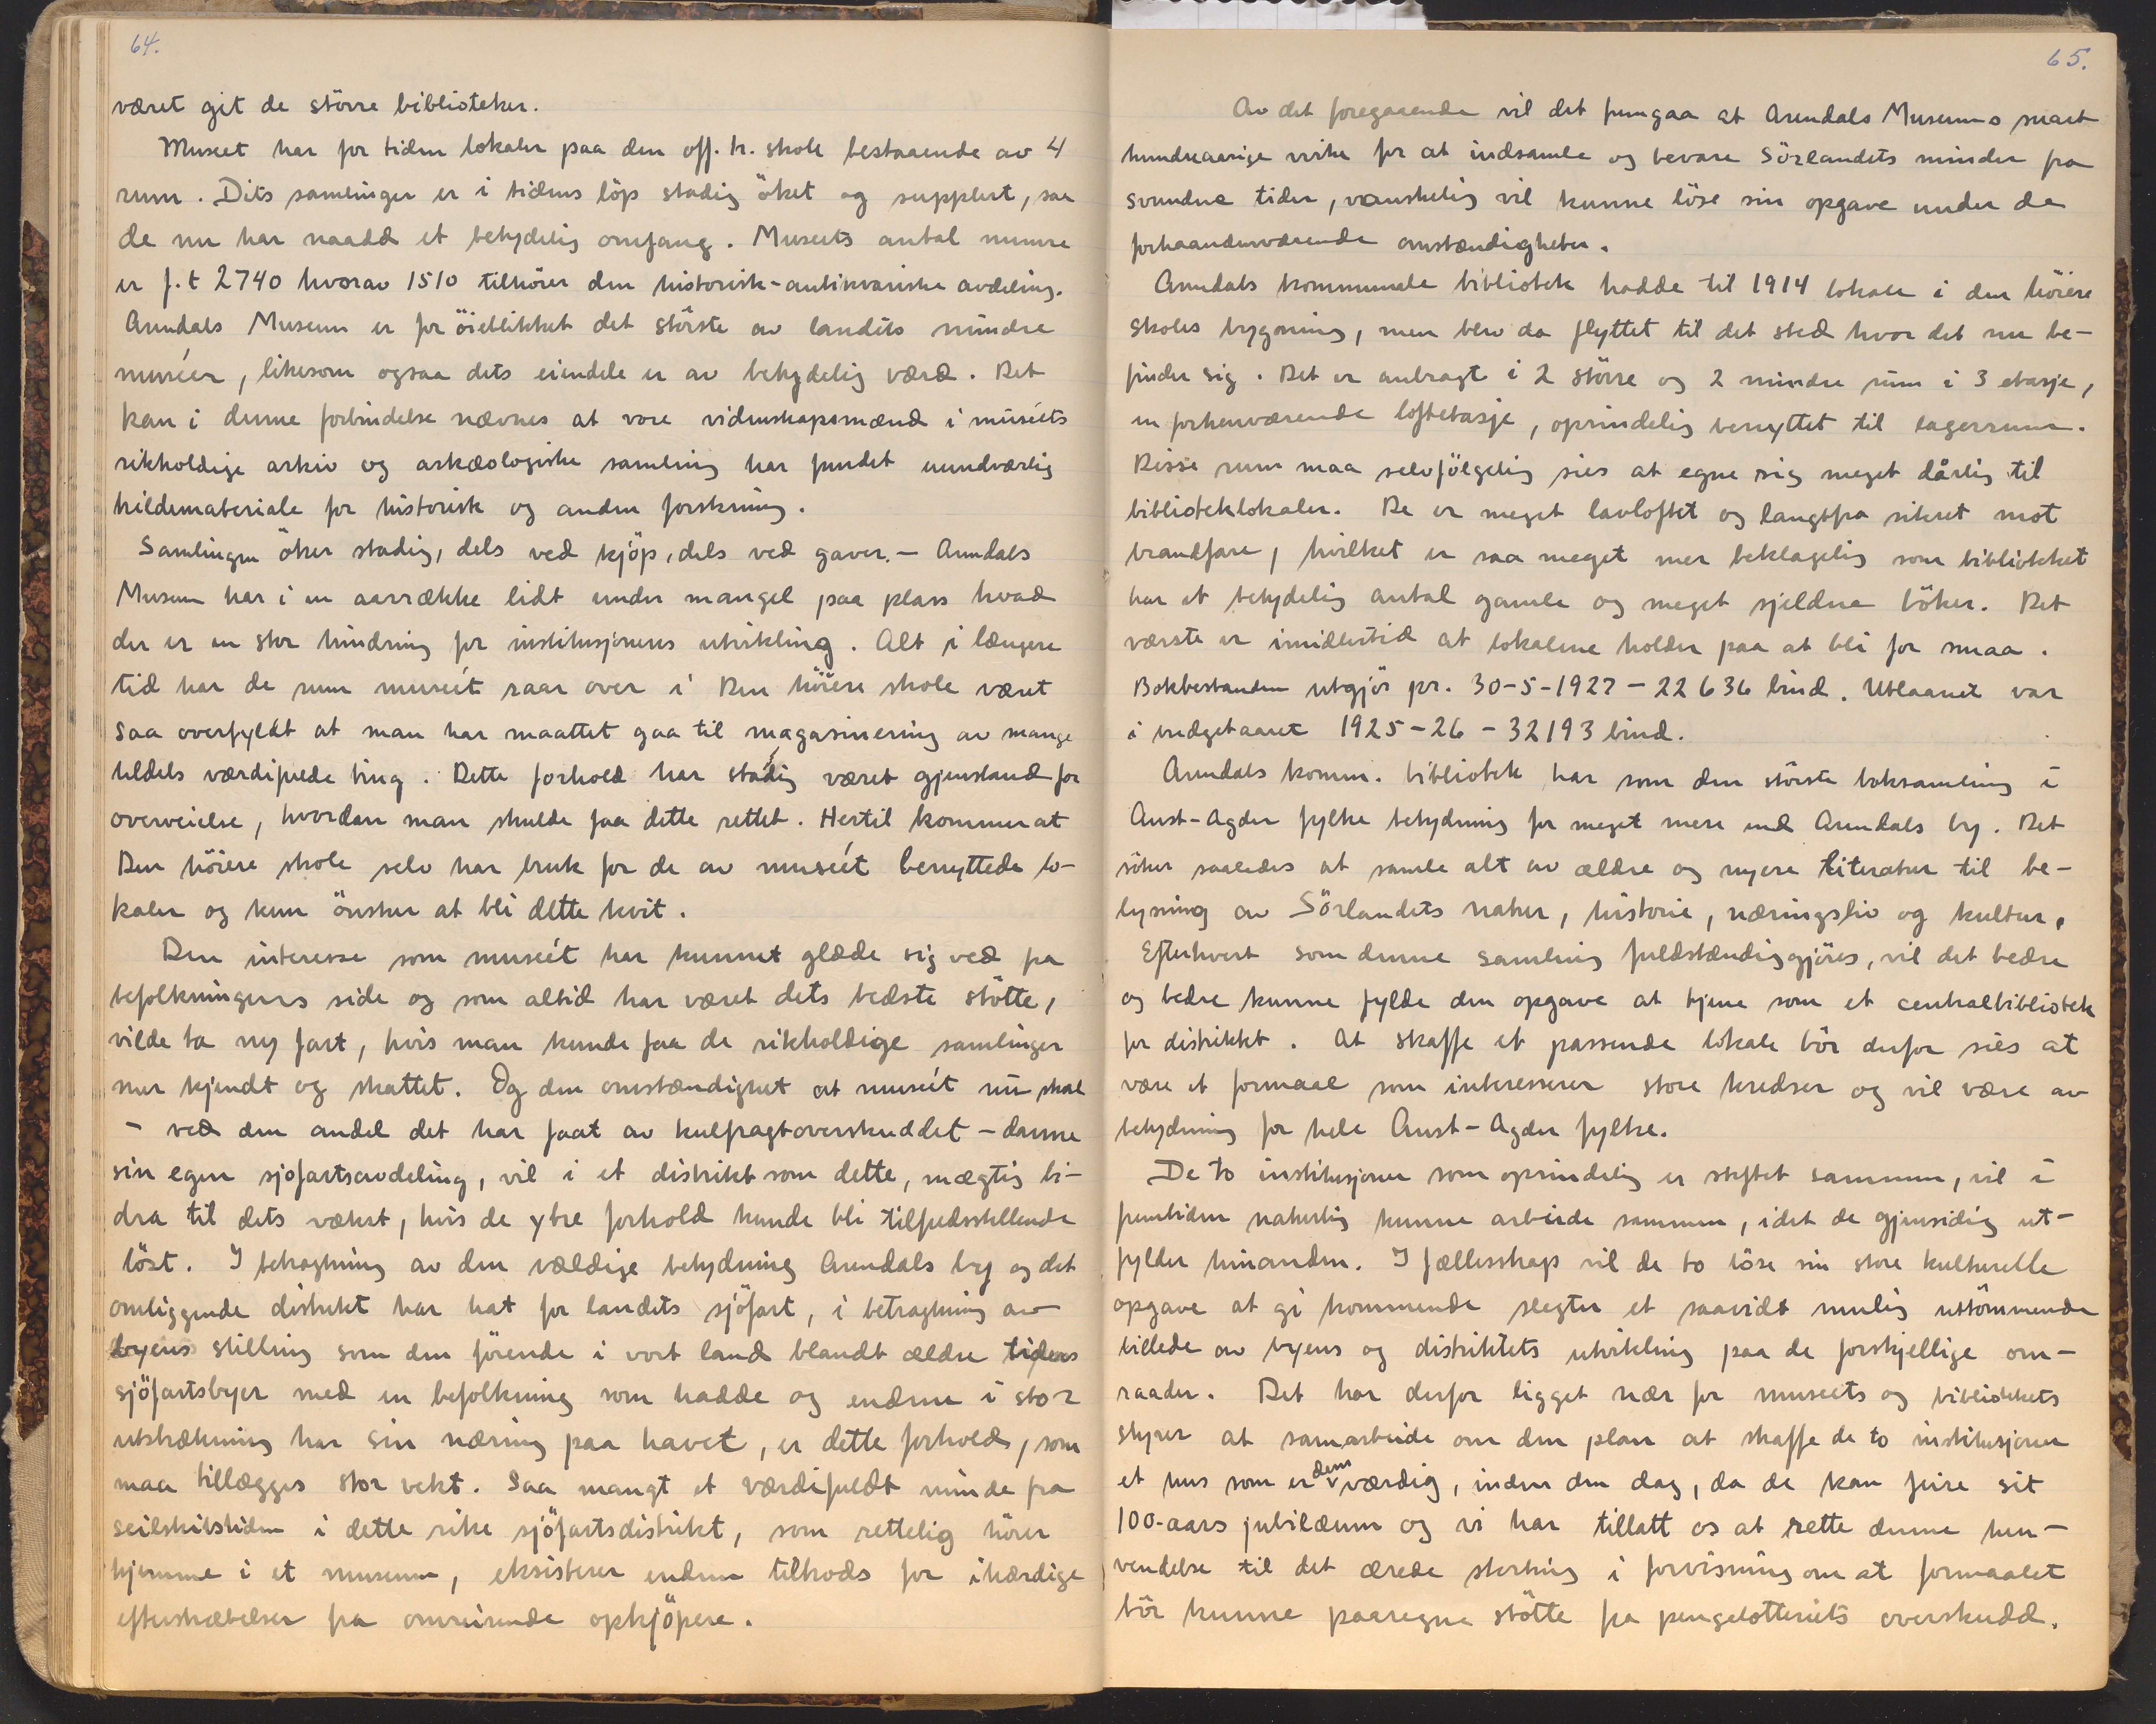 64.
været git de större biblioteker.
Museet har for tiden lokaler paa den off. h. skole bestaaende av 4
rum. Dets samlinger er i tidens löp stadig öket og supplert, saa
de nu har naadd et betydelig omfang. Museets antal numre
er f.t 2740 hvorav 1510 tilhörer den historisk-antikvariske avdeling.
Arendals Museum er for öieblikket det störste av landets mindre
muséer, likesom ogsaa dets eiendele er av betydelig værd. Det
kan i denne forbindelse nævnes at vore videnskapsmænd i muséets
rikholdige arkiv og arkæologiske samling har fundet uundværlig
kildemateriale for historisk og anden forskning.
Samlingen öker stadig, dels ved kjöp, dels ved gaver. - Arendals
Museum har i en aarrække lidt under mangel paa plass hvad
der er en stor hindring for institusjonens utvikling. Alt i længere
tid har de rum muséet raar over i Den höiere skole været
saa overfyldt at man har maattet gaa til magasinering av mange
tildels værdifulde ting. Dette forhold har stadig været gjenstand for
overveielse, hvordan man skulde faa dette rettet. Hertil kommer at
Den höiere skole selv har bruk for de av muséet benyttede lo-
kaler og kun önsker at bli dette kvit.
Den interesse som muséet har kunnet glæde sig ved fra
befolkningens side og som altid har været dets bedste stötte,
vilde ta ny fart, hvis man kunde faa de rikholdige samlinger
mer kjendt og skattet. Og den omstændighet at muséet nu skal
- ved den andel det har faat av kulfragtoverskuddet - danne
sin egen sjöfartsavdeling, vil i et distrikt som dette, mægtig bi-
dra til dets vækst, hvis de ytre forhold kunde bli tilfredsstillende
löst. I betragtning av den vældige betydning Arendals by og det
omliggende distrikt har hat for landets sjöfart, i betragtning av
byens stilling som den förende i vort land blandt ældre tiders
sjöfartsbyer med en befolkning som hadde og endnu i stor
utstrækning har sin næring paa havet, er dette forhold, som
maa tillægges stor vekt. Saa mangt et værdifuldt minde fra
seilskibstiden i dette rike sjöfartsdistrikt, som rettelig hörer
hjemme i et museum, eksisterer endnu tiltrods for ihærdige
efterstræbelser fra omreisende opkjöpere.
65.
Av det foregaaende vil det fremgaa at Arendals Museums snart
hundreaarige virke for at indsamle og bevare Sörlandets minder fra
svundne tider, vanskelig vil kunne löse sin opgave under de
forhaandenværende omstændigheter.
Arendals kommunale bibliotek hadde til 1914 lokale i den höiere
skoles bygning, men blev da flyttet til det sted hvor det nu be-
finder sig. Det er anbragt i 2 större og 2 mindre rum i 3 etasje,
en forhenværende loftetasje, oprindelig benyttet til lagerrum.
Disse rum maa selvfölgelig sies at egne sig meget dårlig til
biblioteklokaler. De er meget lavloftet og langtfra sikret mot
brandfare, hvilket er saa meget mer beklagelig som biblioteket
har et betydelig antal gamle og meget sjeldne böker. Det
værste er imidlertid at lokalene holder paa at bli for smaa.
Bokbestanden utgjör pr. 30-5-1927 - 22636 bind. Utlaanet var
i budgetaaret 1925-26 - 32193 bind.
Arendals komm. bibliotek har som den störste boksamling i
Aust-Agder fylke betydning for meget mere end Arendals by. Det
söker saaledes at samle alt av ældre og nyere literatur til be-
lysning av Sörlandets natur, historie, næringsliv og kultur.
Efterhvert som denne samling fuldstændiggjöres, vil det bedre
og bedre kunne fylde den opgave at tjene som et centralbibliotek
for distriktet. At skaffe et passende lokale bör derfor sies at
være et formaal som interesserer store kredser og vil være av
betydning for hele Aust-Agder fylke.
De to institusjoner som oprindelig er stiftet sammen, vil i
fremtiden naturlig kunne arbeide sammen, idet de gjensidig ut-
fylder hinanden. I fællesskap vil de to löse sin store kulturelle
opgave at gi kommende slegter et saavidt mulig uttömmende
billede av byens og distriktets utvikling paa de forskjellige om-
raader. Det har derfor ligget nær for museets og bibliotekets
styrer at samarbeide om den plan at skaffe de to institusjoner
et hus som er dem værdig, inden den dag, da de kan feire sit
100-aars jubilæum og vi har tillatt os at rette denne hen-
vendelse til det ærede storting i forvisning om at formaalet
bör kunne paaregne stötte fra pengelotteriets overskudd.